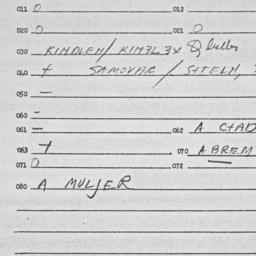 011 0 012
020 0 021 0
030 KINDLEM/KIM3L3X
040 + SAMOVAR / SITELM, 3
050 -
060 -
061 = 062 A CHAD
063 + 070 ABREM
071 0 072 —
080 A MULJER